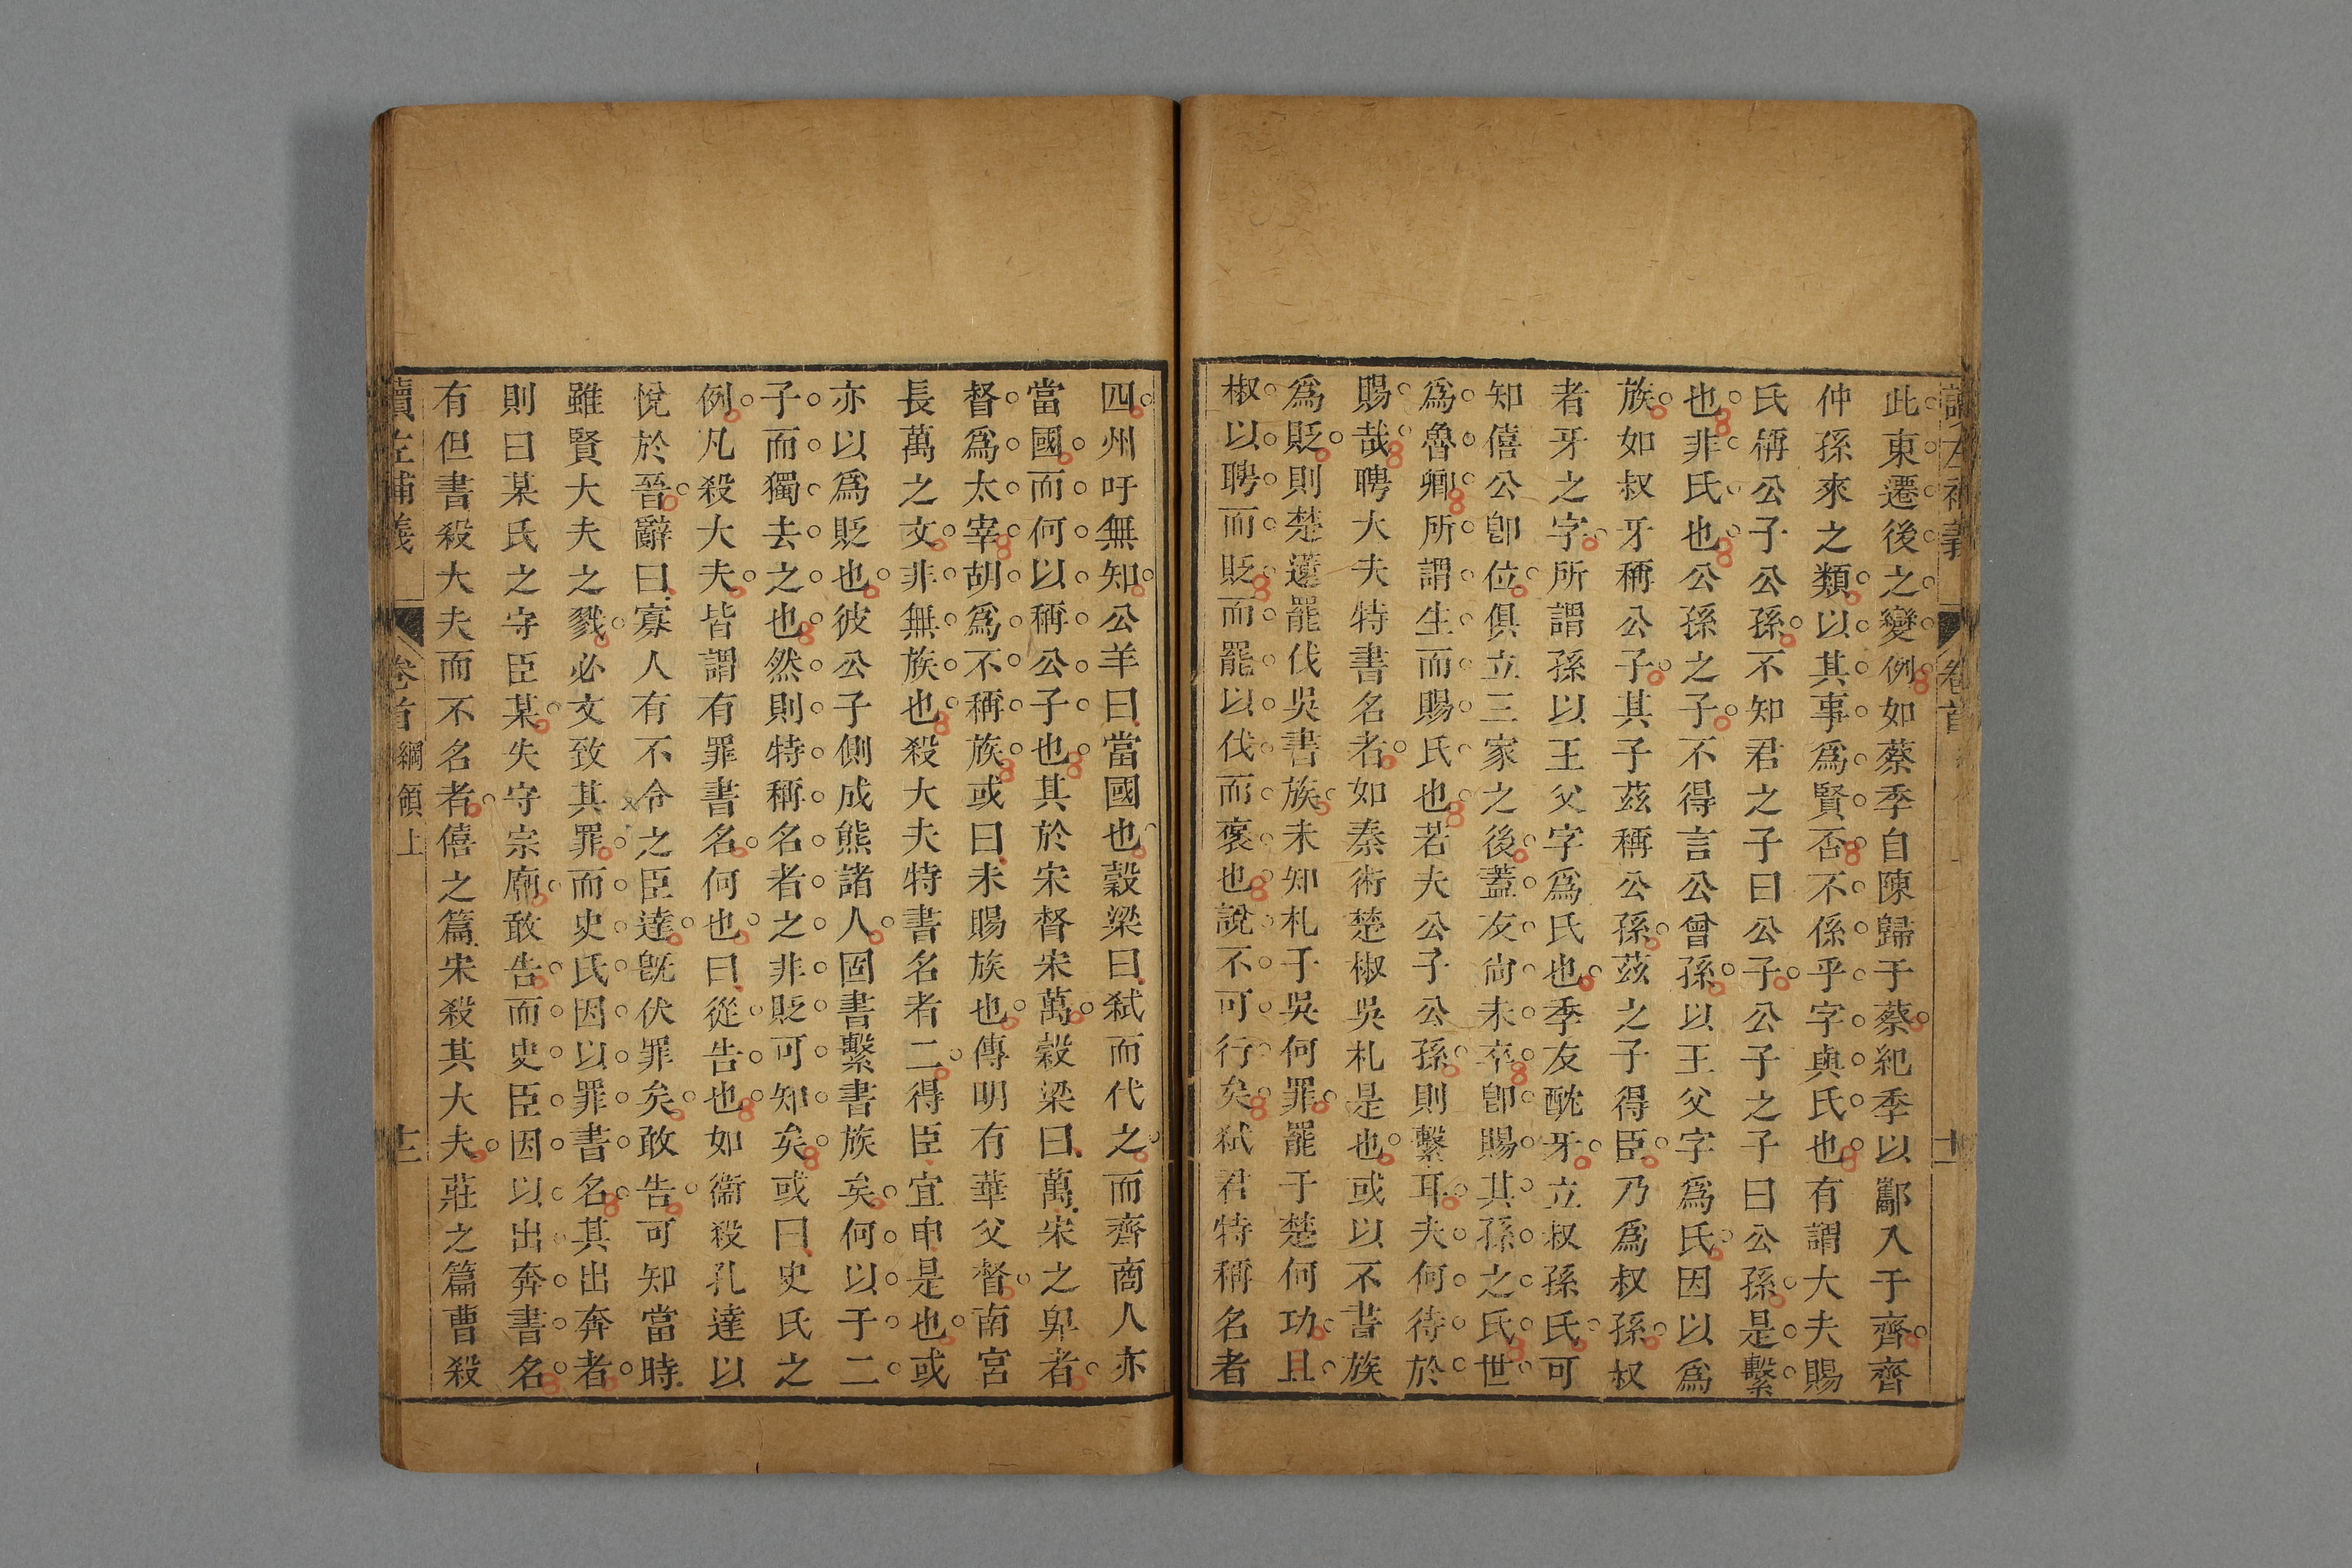 此東遷後之變例如蔡季自陳歸于蔡紀季以酅入于齊齊
仲孫來之類以其事爲賢否不係乎字與氏也有謂大夫賜
氏稱公子公孫不知君之子曰公子公子之子曰公孫是繫
也非氏也公孫之子不得言公曾孫以王父字爲氏因以爲
族如叔牙稱公子其子茲稱公孫茲之子得臣乃爲叔孫叔
者牙之字所謂孫以王父字爲氏也季友酖牙立叔孫氏可
知僖公卽位俱立三家之後蓋友尙未卒卽賜其孫之氏世
爲魯卿所謂生而賜氏也若夫公子公孫則繫耳夫何待於
賜哉聘大夫特書名者如秦術楚椒吳札是也或以不書族
爲貶則楚薳罷伐吳書族未知札于吳何罪罷于楚何功且
椒以聘而貶而罷以伐而褒也說不可行矣弒君特稱名者
四州吁無知公羊曰當國也穀梁曰弒而代之而齊商人亦
當國而何以稱公子也其於宋督宋萬穀梁曰萬宋之卑者
督爲太宰胡爲不稱族或曰未賜族也傳明有華父督南宮
長萬之文非無族也殺大夫特書名者二得臣宜申是也或
亦以爲貶也彼公子側成熊諸人固書繫書族矣何以于二
子而獨去之也然則特稱名者之非貶可知矣或曰史氏之
例凡殺大夫皆謂有罪書名何也曰從告也如衞殺孔達以
悅於晉辭曰寡人有不令之臣達旣伏罪矣敢告可知當時
雖賢大夫之戮必文致其罪而史氏因以罪書名其出奔者
則曰某氏之守臣某失守宗廟敢告而史臣因以出奔書名
有但書殺大夫而不名者僖之篇宋殺其大夫莊之篇曹殺
讀左補義 卷首 綱領上 十二